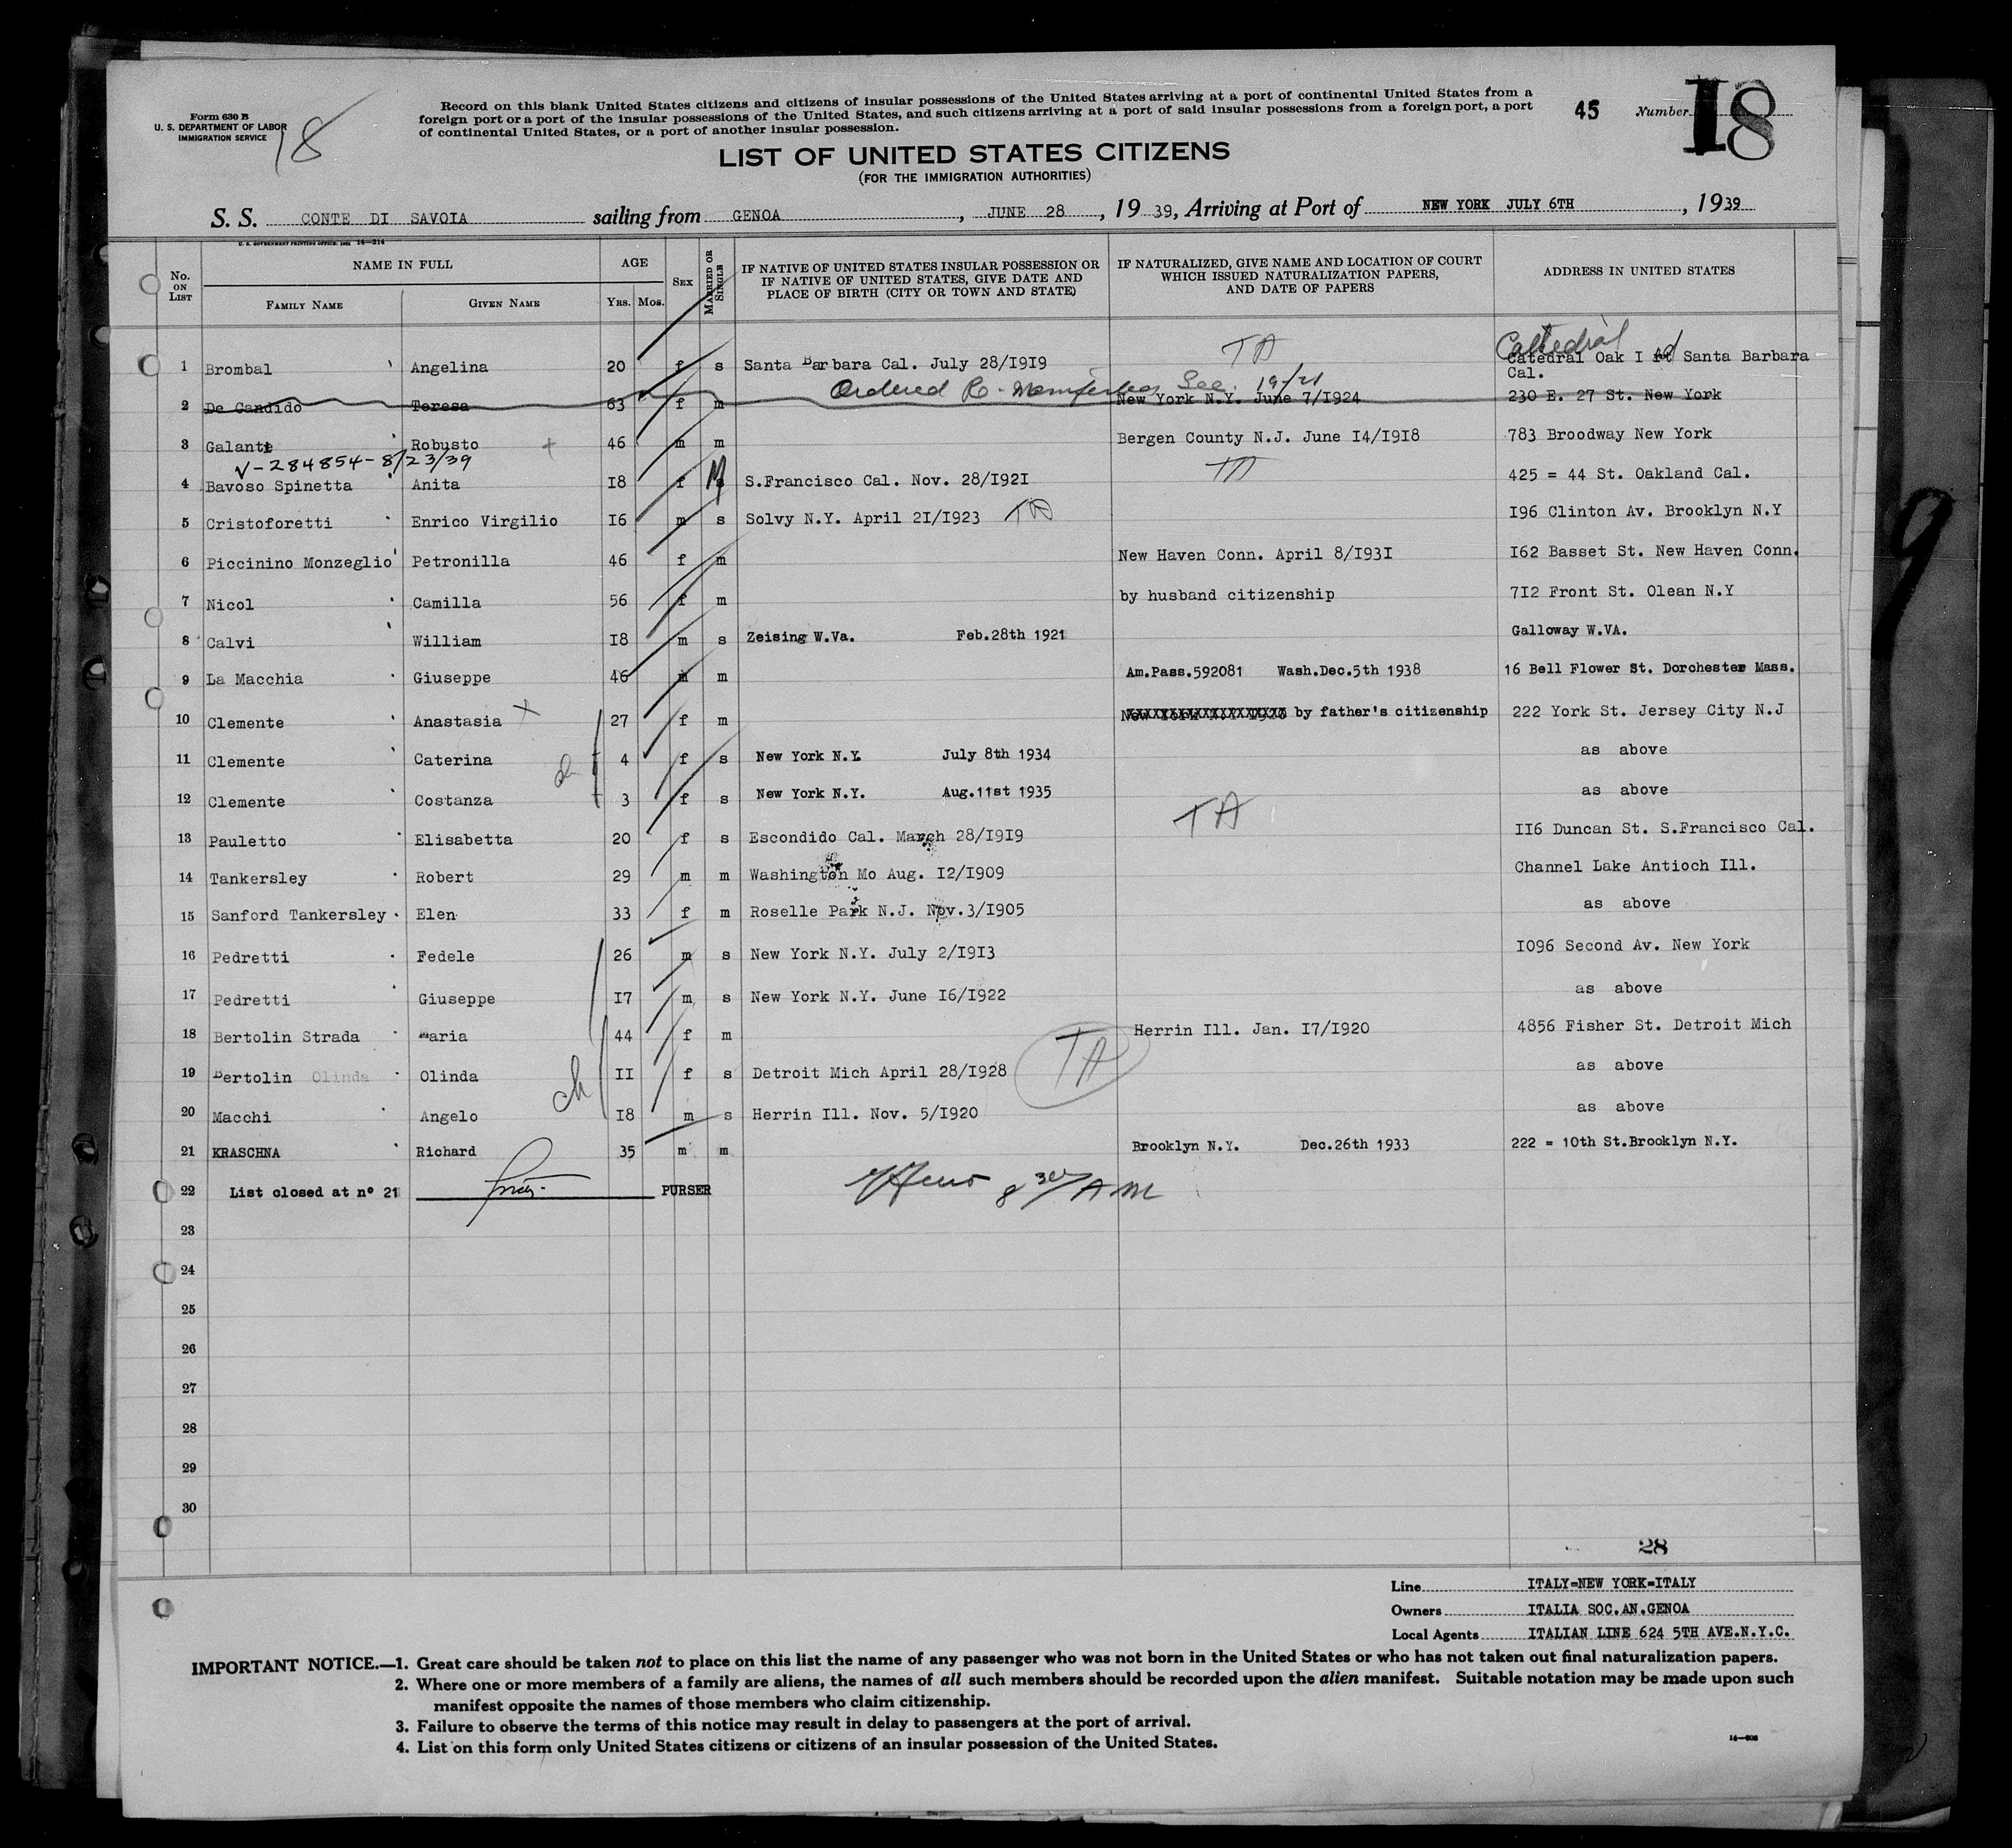 Form 630 B
U. S. DEPARTMENT OF LABOR
IMMIGRATION SERVICE
18
Record on this blank United States citizens and citizens of insular possessions of the United States arriving at a port of continental United States from a
foreign port or a port of the insular possessions of the United States, and such citizens arriving at a port of said insular possessions from a foreign port, a port
of continental United States, or a port of another insular possession.
45 Number 18
LIST OF UNITED STATES CITIZENS
(FOR THE IMMIGRATION AUTHORITIES)
S. S. CONTE DI SAVOIA sailing from GENOA, JUNE 28, 1939, Arriving at Port of NEW YORK JULY 6TH, 1939
U. S. GOVERNMENT PRINTING OFFICE 14—214
No. ON LIST
NAME IN FULL
FAMILY NAME
GIVEN NAME
AGE
YRS. MOS.
SEX
MARRIED OR SINGLE
IF NATIVE OF UNITED STATES INSULAR POSSESSION OR
IF NATIVE OF UNITED STATES, GIVE DATE AND
PLACE OF BIRTH (CITY OR TOWN AND STATE)
IF NATURALIZED, GIVE NAME AND LOCATION OF COURT
WHICH ISSUED NATURALIZATION PAPERS,
AND DATE OF PAPERS
ADDRESS IN UNITED STATES
TA Cathedral
1 Brombal Angelina 20 f s Santa Barbara Cal. July 28/I9I9 Catedral Oak I Rd Santa Barbara
Cal.
Ordered Re-Manifested See 19/21
2 De Candido Teresa 63 f m New York N.Y. June 7/I924 230 E. 27 St. New York
3 Galante Robusto 46 m m Bergen County N.J. June I4/I9I8 783 Broodway New York
V-284854-8/23/39 TA
4 Bavoso Spinetta Anita I8 f M S.Francisco Cal. Nov. 28/I92I 425 = 44 St. Oakland Cal.
5 Cristoforetti Enrico Virgilio I6 m s Solvy N.Y. April 2I/I923 TA I96 Clinton Av. Brooklyn N.Y
6 Piccinino Monzeglio Petronilla 46 f m New Haven Conn. April 8/I93I I62 Basset St. New Haven Conn.
7 Nicol Camilla 56 f m by husband citizenship 7I2 Front St. Olean N.Y
8 Calvi William I8 m s Zeising W.Va. Feb.28th 1921 Galloway W.VA.
9 La Macchia Giuseppe 46 m m Am.Pass.592081 Wash.Dec.5th 1938 16 Bell Flower St. Dorchester Mass.
10 Clemente Anastasia X 27 f m by father's citizenship 222 York St. Jersey City N.J
11 Clemente Caterina 4 f s New York N.Y. July 8th 1934 as above
12 Clemente Costanza 3 f s New York N.Y. Aug.11st 1935 as above
TA
13 Pauletto Elisabetta 20 f s Escondido Cal. March 28/I9I9 II6 Duncan St. S.Francisco Cal.
14 Tankersley Robert 29 m m Washington Mo Aug. I2/I909 Channel Lake Antioch Ill.
15 Sanford Tankersley Elen 33 f m Roselle Park N.J. Nov.3/I905 as above
16 Pedretti Fedele 26 m s New York N.Y. July 2/I9I3 I096 Second Av. New York
17 Pedretti Giuseppe I7 m s New York N.Y. June I6/I922 as above
18 Bertolin Strada Maria 44 f m Herrin Ill. Jan. I7/I920 4856 Fisher St. Detroit Mich
19 Bertolin Olinda Olinda II f s Detroit Mich April 28/I928 TA as above
ch
20 Macchi Angelo I8 m s Herrin Ill. Nov. 5/I920 as above
21 KRASCHNA Richard 35 m m Brooklyn N.Y. Dec.26th 1933 222 = 10th St.Brooklyn N.Y.
22 List closed at nº 21 PURSER 8 30/ AM
23
24
25
26
27
28
29
30
28
9
Line ITALY=NEW YORK=ITALY
Owners ITALIA SOC.AN.GENOA
Local Agents ITALIAN LINE 624 5TH AVE.N.Y.C.
IMPORTANT NOTICE.—1. Great care should be taken not to place on this list the name of any passenger who was not born in the United States or who has not taken out final naturalization papers.
2. Where one or more members of a family are aliens, the names of all such members should be recorded upon the alien manifest. Suitable notation may be made upon such
manifest opposite the names of those members who claim citizenship.
3. Failure to observe the terms of this notice may result in delay to passengers at the port of arrival.
4. List on this form only United States citizens or citizens of an insular possession of the United States.